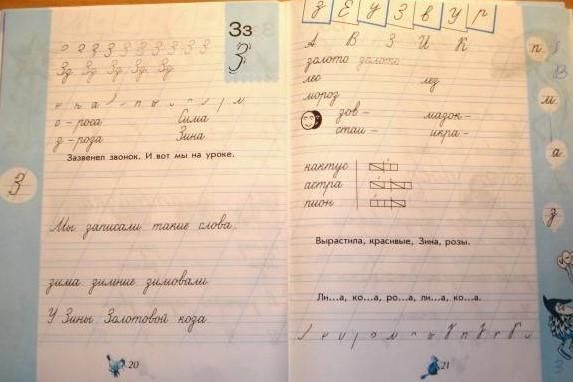 Зз
З
о з з з з з з з з з
Зд Зд Зд Зд Зд
с - роса Сима
з - роза Зина
Зазвенел звонок. И вот мы на уроке.
З
Мы записали такие слова.
зима зимние зимовали
У Зины Золотовой коза
20
З Е У З в У р
А В З И К
золото золото
лес лез
мороз
зов - мазок -
стаи - икра -
кактус
астра
пион
Вырастила, красивые, Зина, розы.
Ли...а, ко...а, ро...а, ли...а, ко...а.
21
п
м
а
з